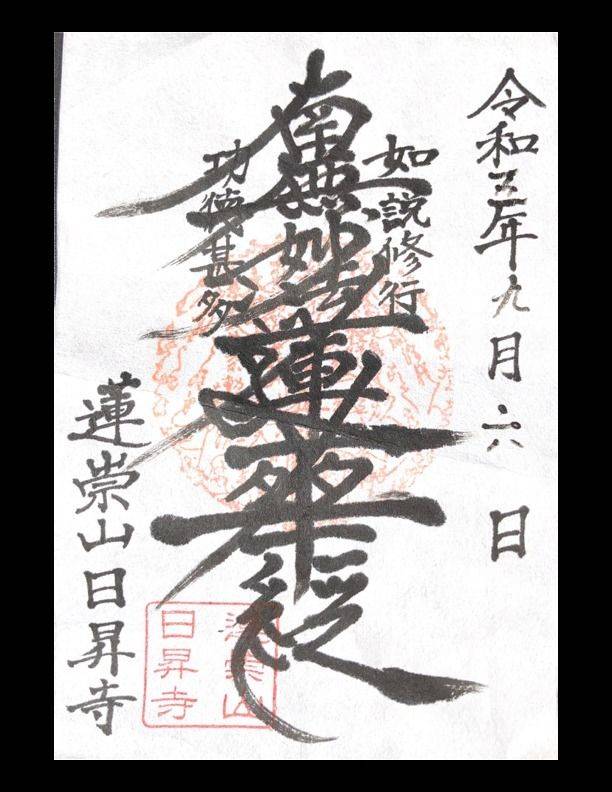 令和三年九月六日
如説修行
南無妙法蓮華経
功徳甚多
蓮崇山日昇寺
蓮崇山
日昇寺